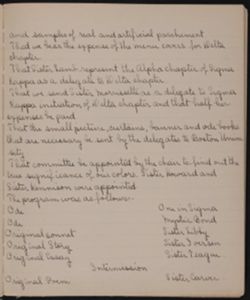 and samples of real and artificial parchment
That we bear the expense of the menu cards for Delta
chapter.
That Sister represent the Alpha chapter of Sigma
Kappa as a delegate to Delta chapter
That we send Sister as a delegate to Sigma
Kappa initiation of Delta chapter and that half her
expenses be paid
That the small picture, curtains, banner and ode books
that are necessary be sent by the delegates to Boston
That committee be appointed by the chair to find out the
true significance of our colors. Sister Howard and
Sister Kennison were appointed
The program was as follows:-
Ode One in Sigma
Ode Mystic Bond
Original sonnet Sister Libby
Original Story Sister Iverson
Original Essay Sister Teague
Intermission
Original Poem Sister Carver